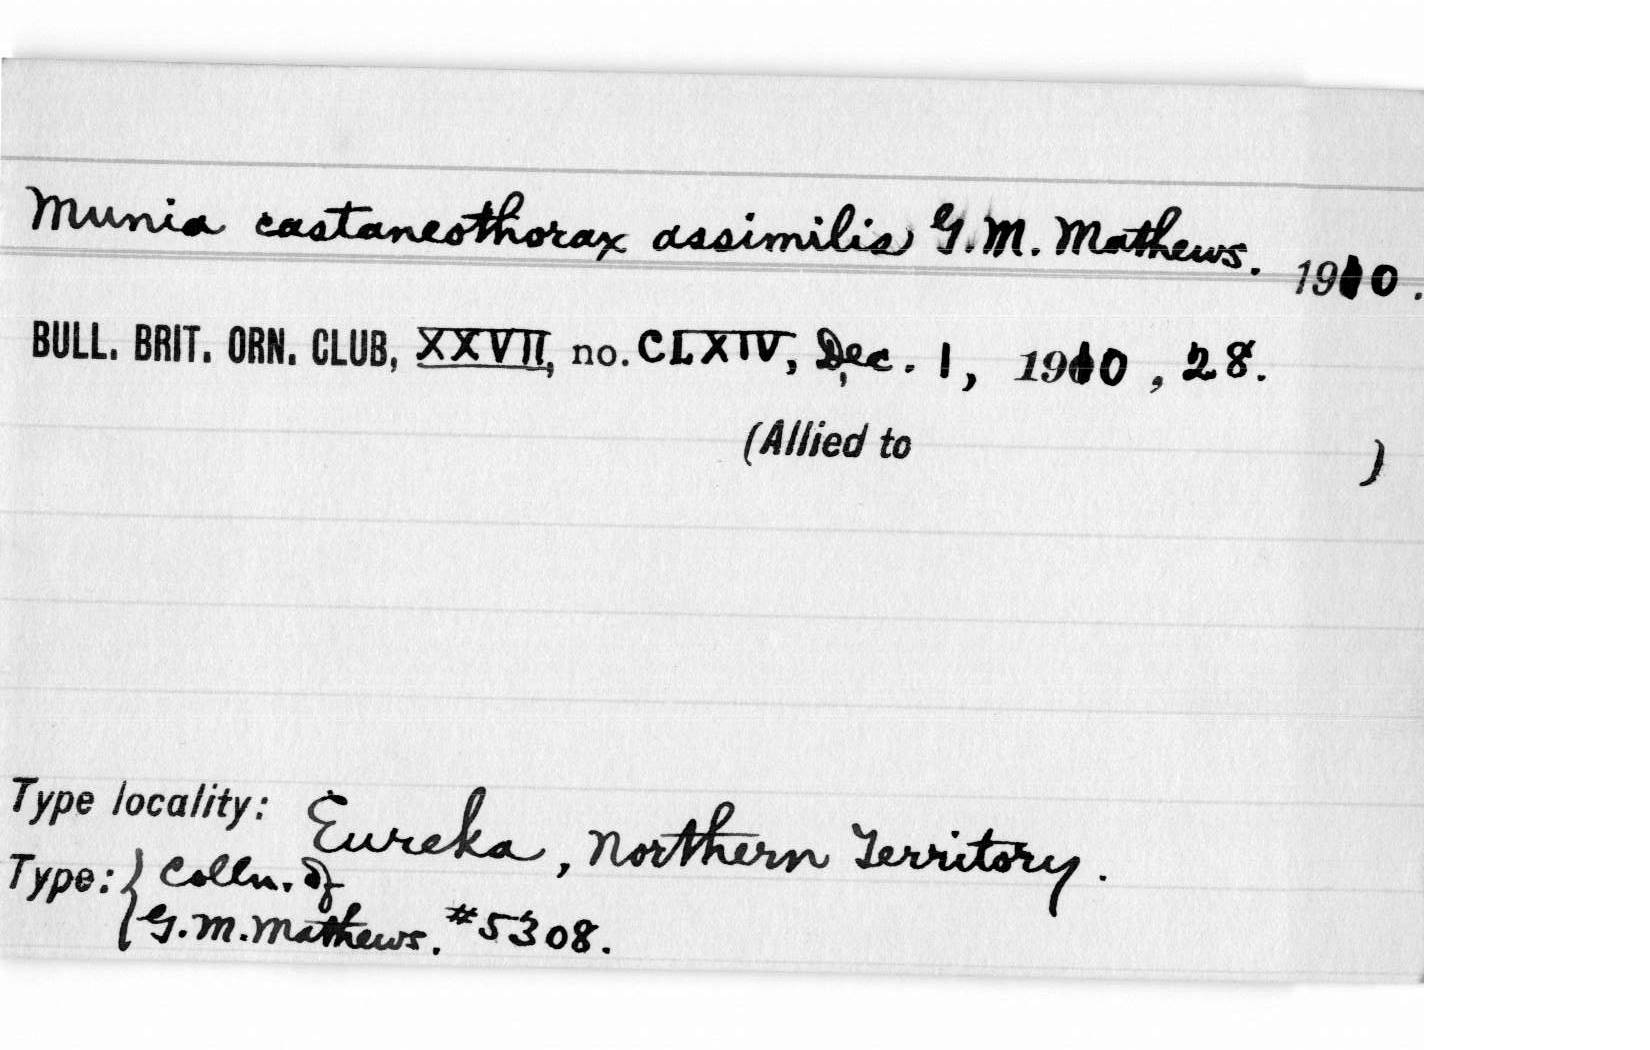 Munia castaneothorax assimilis G.M. Mathews. 1910.
BULL. BRIT. ORN. CLUB, XXVII, no. CLXIV, Dec. 1, 1910, 28.
(Allied to )
Type locality: Eureka, Northern Territory.
Type: { Colln. of
G.M. Mathews. #5308.